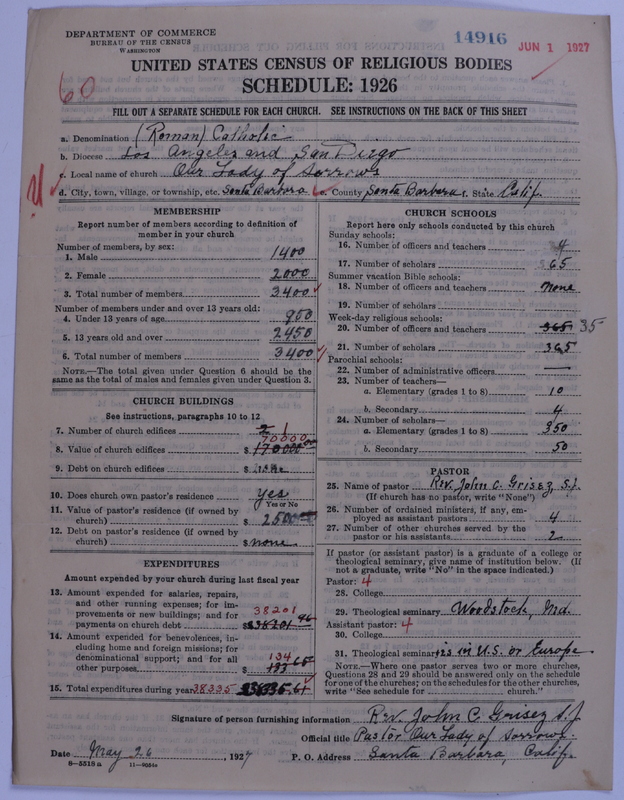 DEPARTMENT OF COMMERCE
BUREAU OF THE CENSUS
WASHINGTON
14916
JUN 1 1927
UNITED STATES CENSUS OF RELIGIOUS BODIES
SCHEDULE: 1926
60
FILL OUT A SEPARATE SCHEDULE FOR EACH CHURCH. SEE INSTRUCTIONS ON THE BACK OF THIS SHEET
a. Denomination (Roman) Catholic
b. Diocese Los Angeles and San Diego
c. Local name of church Our Lady of Sorrows
d. City, town, village, or township, etc. Santa Barbara e. County Santa Barbara f. State Calif.
MEMBERSHIP
Report number of members according to definition of
member in your church
Number of members, by sex:
1. Male 1400
2. Female 2000
3. Total number of members 3400
Number of members under and over 13 years old:
4. Under 13 years of age 950
5. 13 years old and over 2450
6. Total number of members 3400
NOTE.—The total given under Question 6 should be the
same as the total of males and females given under Question 3.
CHURCH BUILDINGS
See instructions, paragraphs 10 to 12
7. Number of church edifices 2 1
70000
8. Value of church edifices $ 170000 00
9. Debt on church edifices $ none
10. Does church own pastor's residence yes
Yes or No
11. Value of pastor's residence (if owned by
church) $ 2500
12. Debt on pastor's residence (if owned by
church) $ none
EXPENDITURES
Amount expended by your church during last fiscal year
13. Amount expended for salaries, repairs,
and other running expenses; for im-
provements or new buildings; and for 38201
payments on church debt $38201 96
14. Amount expended for benevolences, in-
cluding home and foreign missions; for
denominational support; and for all 134
other purposes $ 133 65
15. Total expenditures during year 38335 $38335.61
CHURCH SCHOOLS
Report here only schools conducted by this church
Sunday schools:
16. Number of officers and teachers 4
17. Number of scholars 65
Summer vacation Bible schools:
18. Number of officers and teachers none
19. Number of scholars
Week-day religious schools:
20. Number of officers and teachers 365 35
21. Number of scholars 365
Parochial schools:
22. Number of administrative officers —
23. Number of teachers—
a. Elementary (grades 1 to 8) 10
b. Secondary 4
24. Number of scholars—
a. Elementary (grades 1 to 8) 350
b. Secondary 50
PASTOR
25. Name of pastor Rev. John C. Grisez, S.J.
(If church has no pastor, write "None")
26. Number of ordained ministers, if any, em-
ployed as assistant pastors 4
27. Number of other churches served by the
pastor or his assistants 2
If pastor (or assistant pastor) is a graduate of a college or
theological seminary, give name of institution below. (If
not a graduate, write "No" in the space indicated.)
Pastor: 4
28. College
29. Theological seminary Woodstock, Md.
Assistant pastor: 4
30. College
31. Theological seminary is in U.S. or Europe
NOTE.—Where one pastor serves two or more churches,
Questions 28 and 29 should be answered only on the schedule
for one of the churches; on the schedules for the other churches,
write "See schedule for church."
Signature of person furnishing information Rev. John C. Grisez S.J.
Official title Pastor Our Lady of Sorrows.
Date May 26, 1927 P. O. Address Santa Barbara, Calif.
8—5518 a 11—9254